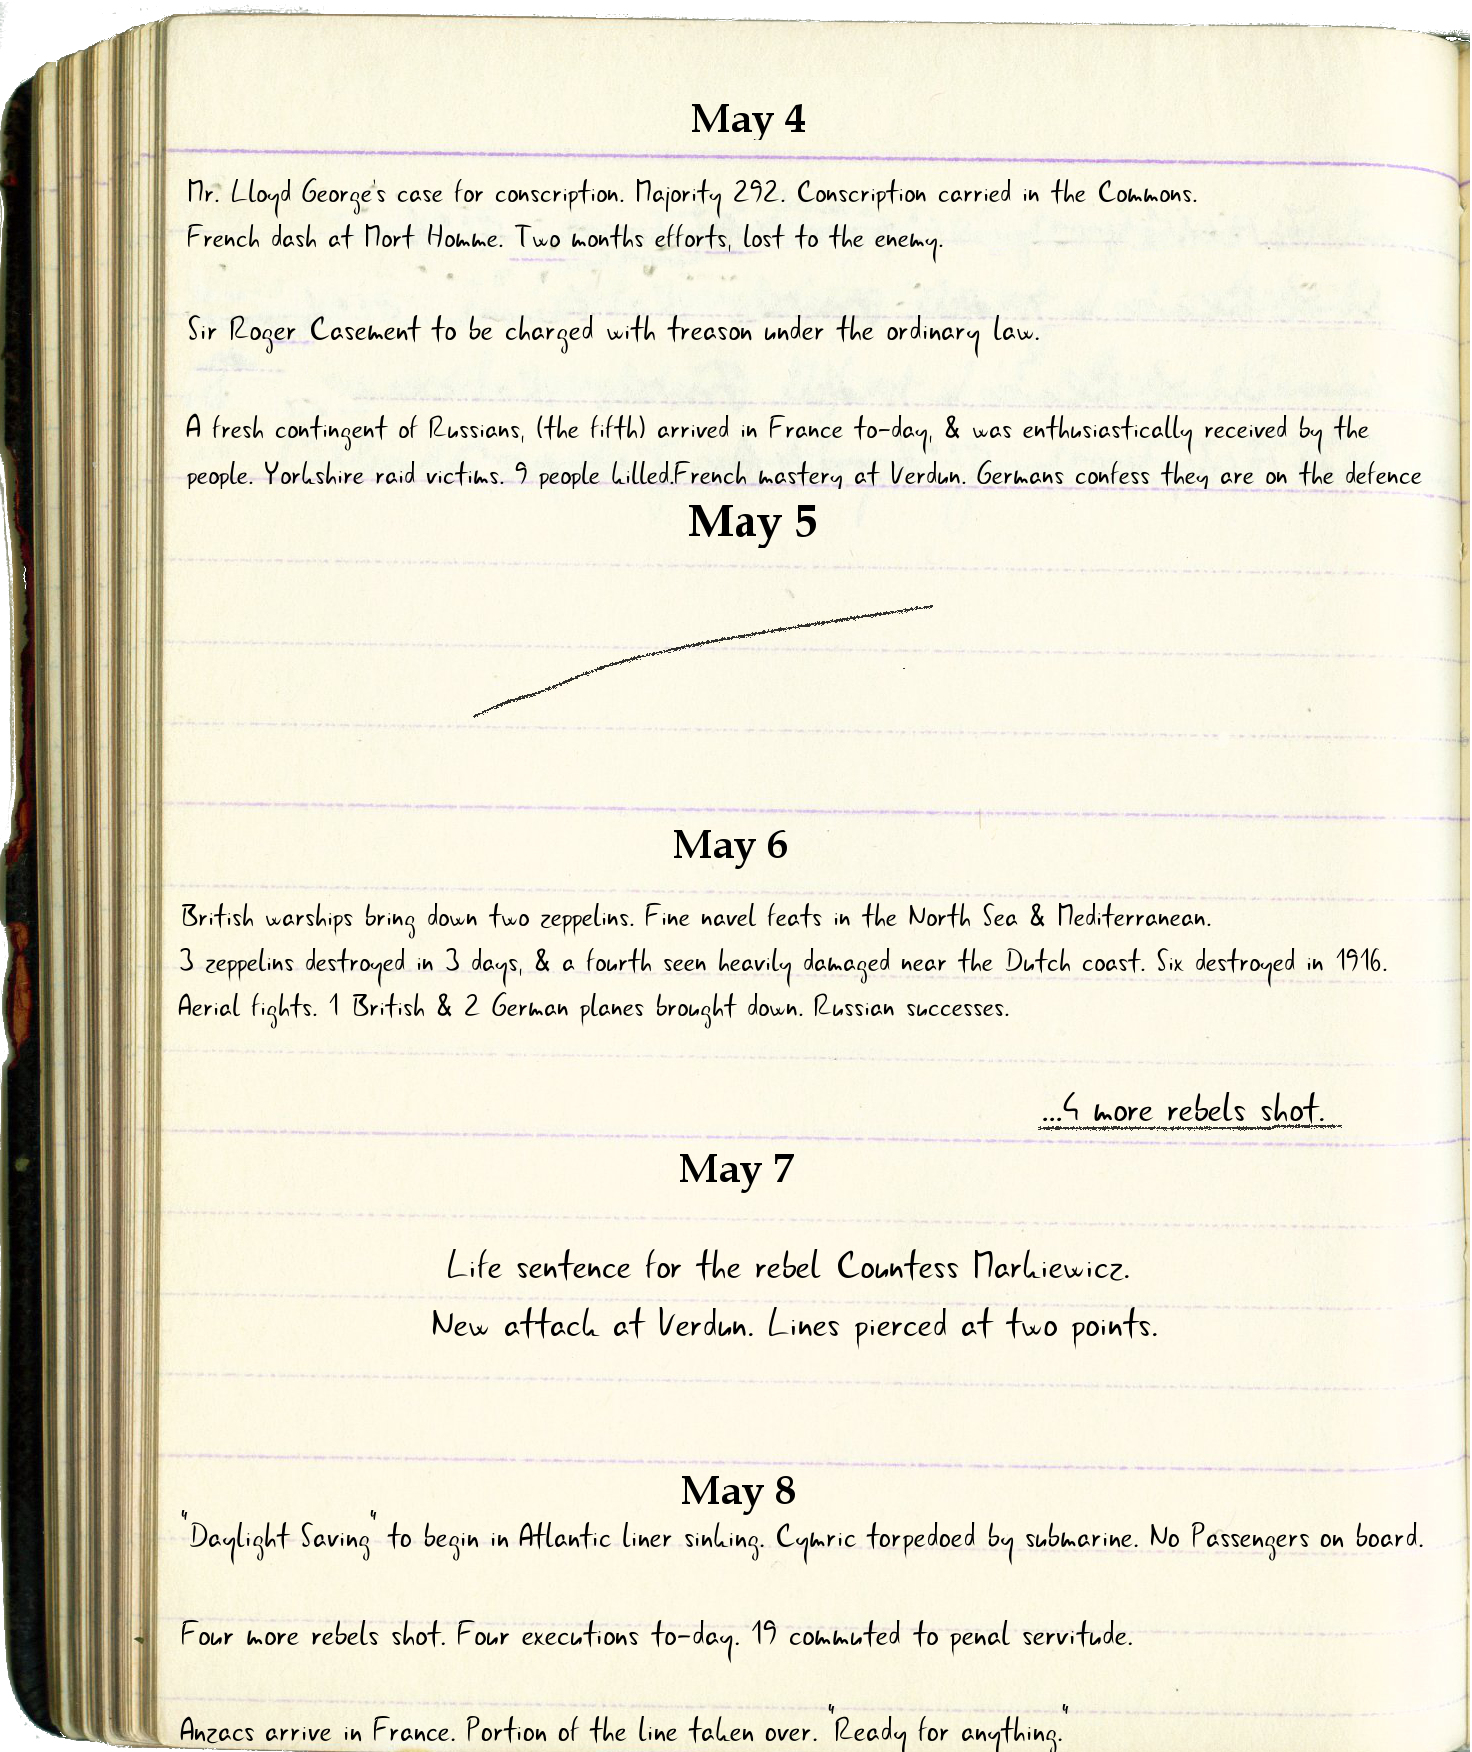 May 4
Mr. Lloyd George's case for conscription. Majority 292. Conscription carried in the Commons.
French dash at Mort Homme. Two months efforts, lost to the enemy.
Sir Roger Casement to be charged with treason under the ordinary law.
A fresh contingent of Russians, (the fifth) arrived in France to-day, & was enthusiastically received by the
people. Yorkshire raid victims. 9 people killed.French mastery at Verdun. Germans confess they are on the defence
May 5
May 6
British warships bring down two zeppelins. Fine navel feats in the North Sea & Mediterranean.
3 zeppelins destroyed in 3 days, & a fourth seen heavily damaged near the Dutch coast. Six destroyed in 1916.
Aerial fights. 1 British & 2 German planes brought down. Russian successes.
...4 more rebels shot.
May 7
Life sentence for the rebel Countess Markiewicz.
New attack at Verdun. Lines pierced at two points.
May 8
"Daylight Saving" to begin in Atlantic liner sinking. Cymric torpedoed by submarine. No Passengers on board.
Four more rebels shot. Four executions to-day. 19 commuted to penal servitude.
Anzacs arrive in France. Portion of the line taken over. "Ready for anything."